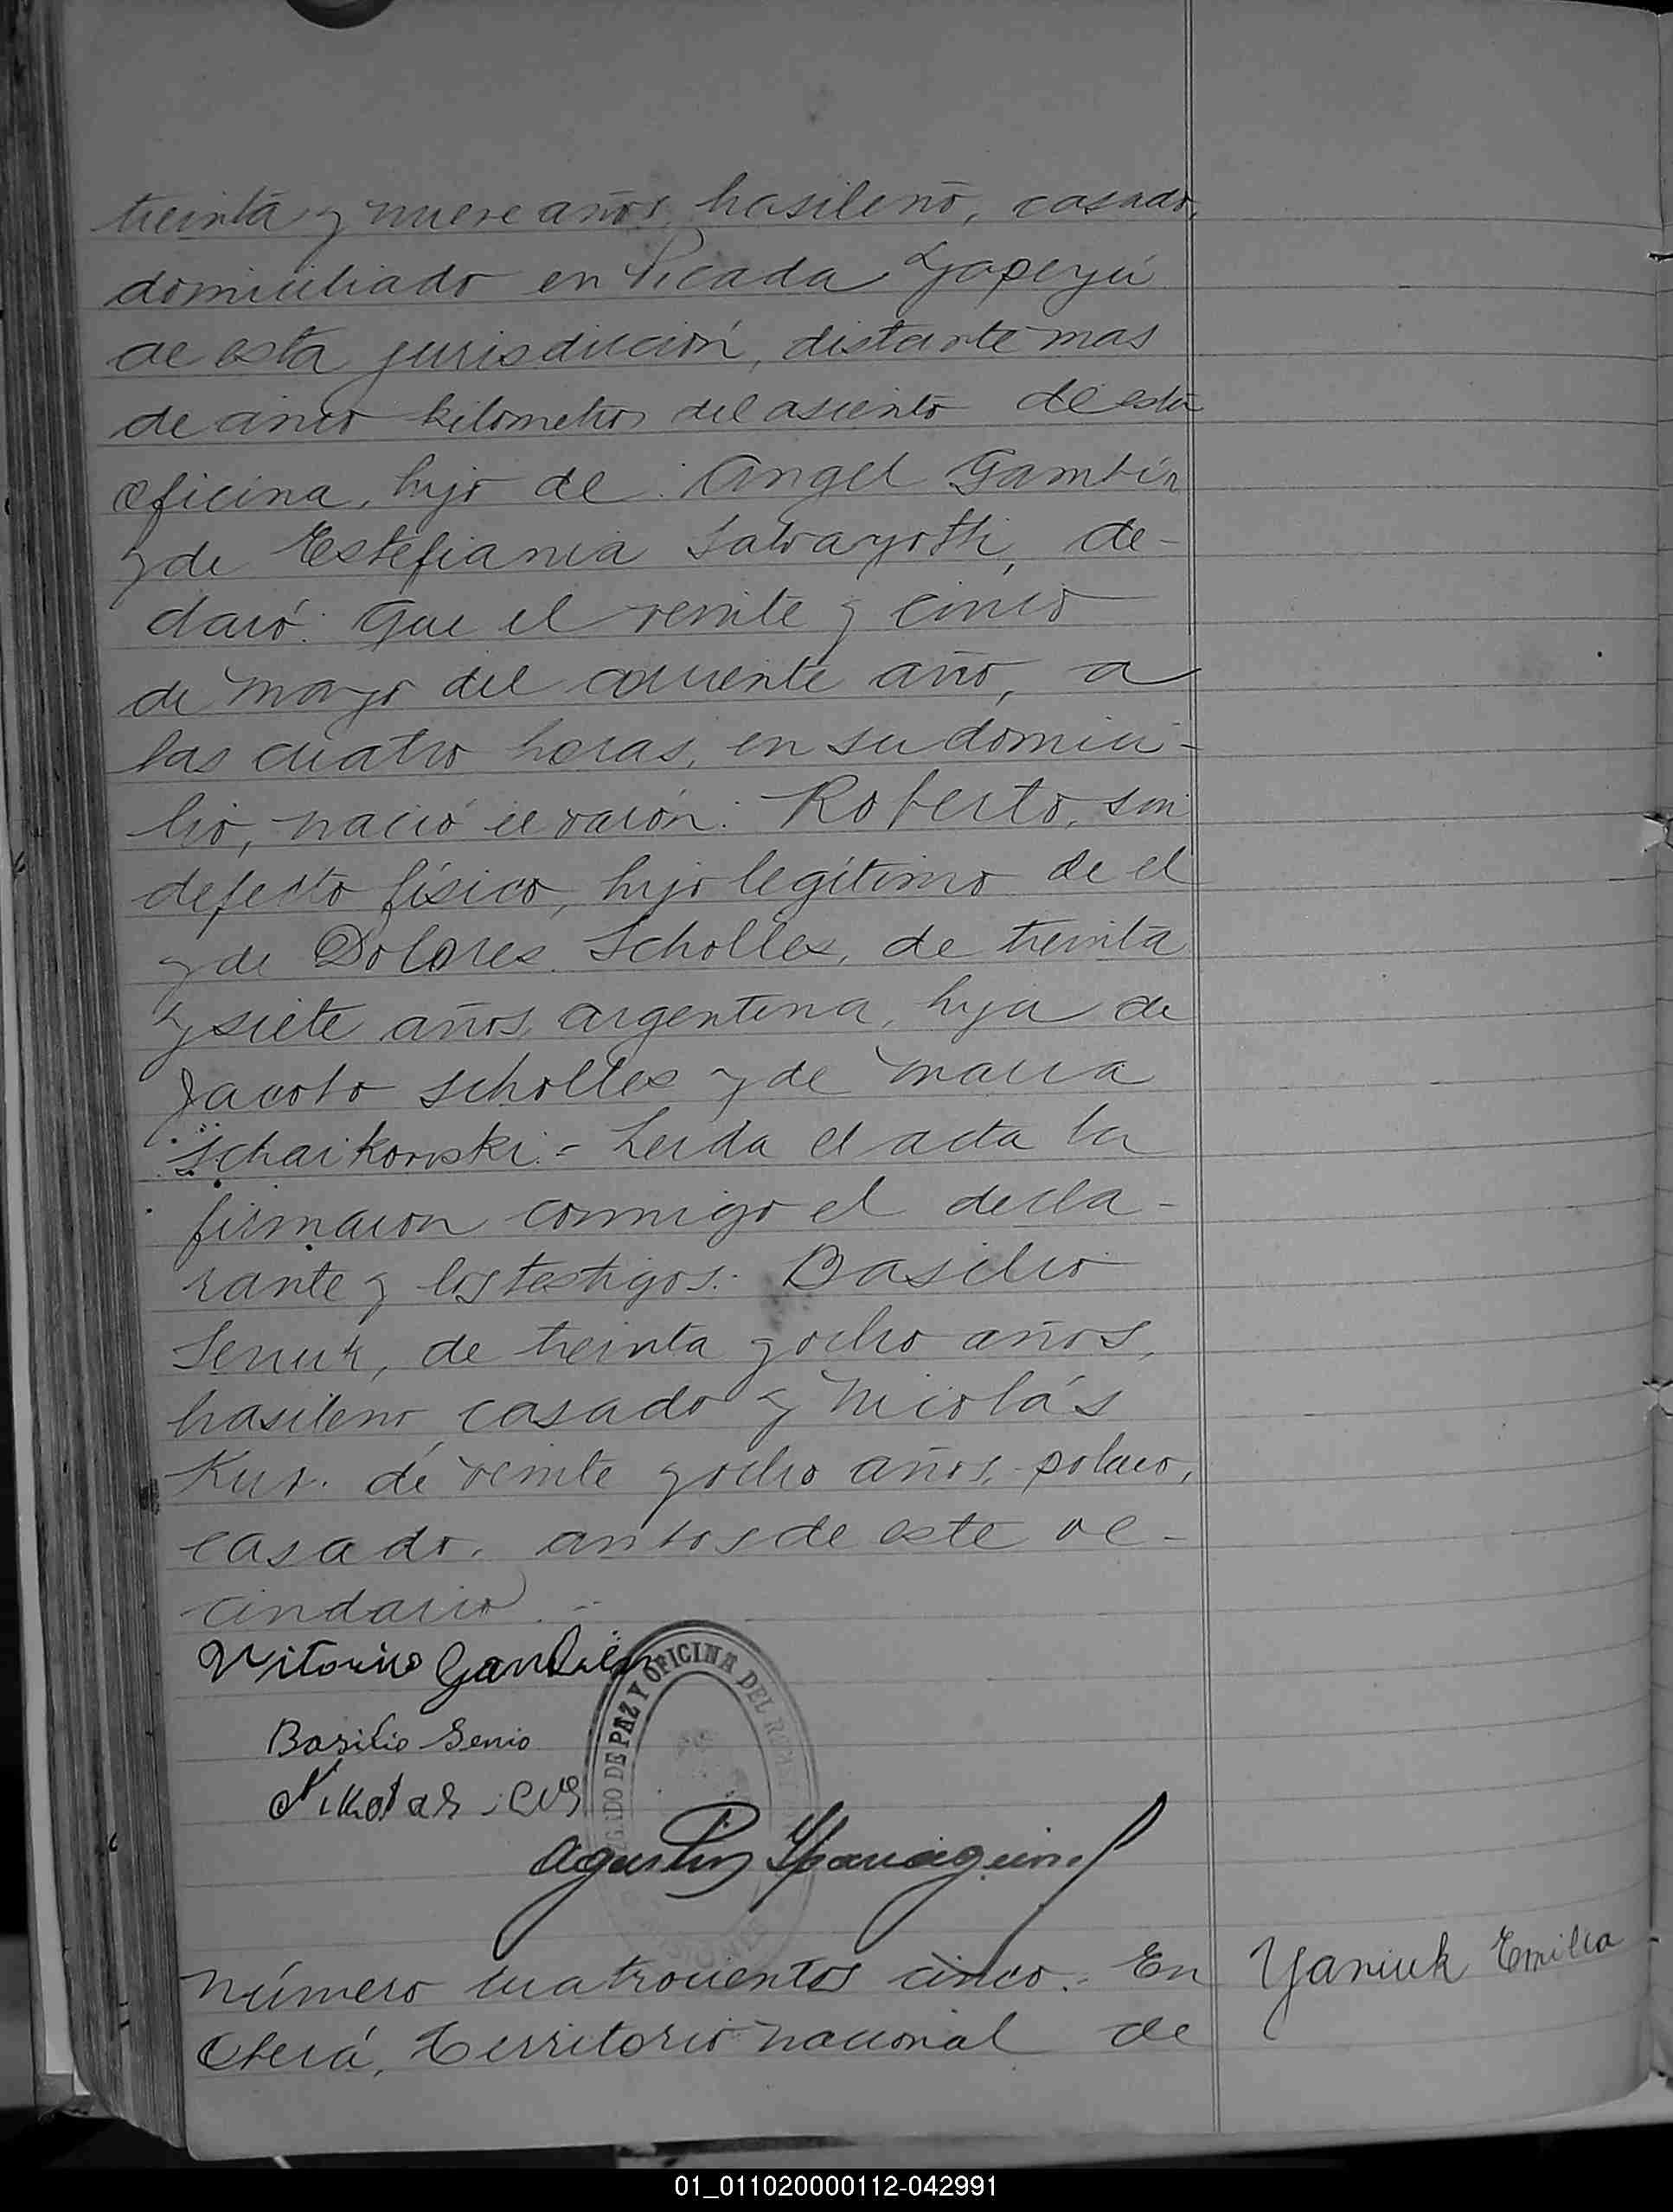 treinta y nueve años, brasileño, casado,
domiciliado en Picada Yapeyú
de esta jurisdicción, distante mas
de cinco kilometros del asiento de esta
oficina, hijo de Angel Gambín
y de Estefiania, de-
claró: Que el veinte y cinco
de Mayo del corriente año, a
las cuatro horas, en su domici-
lio, nació el varón: Roberto, sin
defecto físico, hijo legítimo de el
y de Dolores Scholles, de treinta
y siete años, argentina, hija de
Jacobo Scholles y de Maria
Schaikowski.- Leida el acta la
firmaron conmigo el decla-
rante y los testigos: Basilio
Seniuk, de treinta y ocho años,
brasileno, casado y Nicolás
Kus. de veinte y ocho años, polaco,
casado, ambos de este ve-
cindario.-
Vitorino
Basilio Senio
Nikolas
JUZGADO DE PAZ Y OFICINA DEL
MISIONES
Agustin
Número cuatrocientos cinco.- En
Oberá, Territorio nacional de
Yaniuk Emilia
01_011020000112-042991